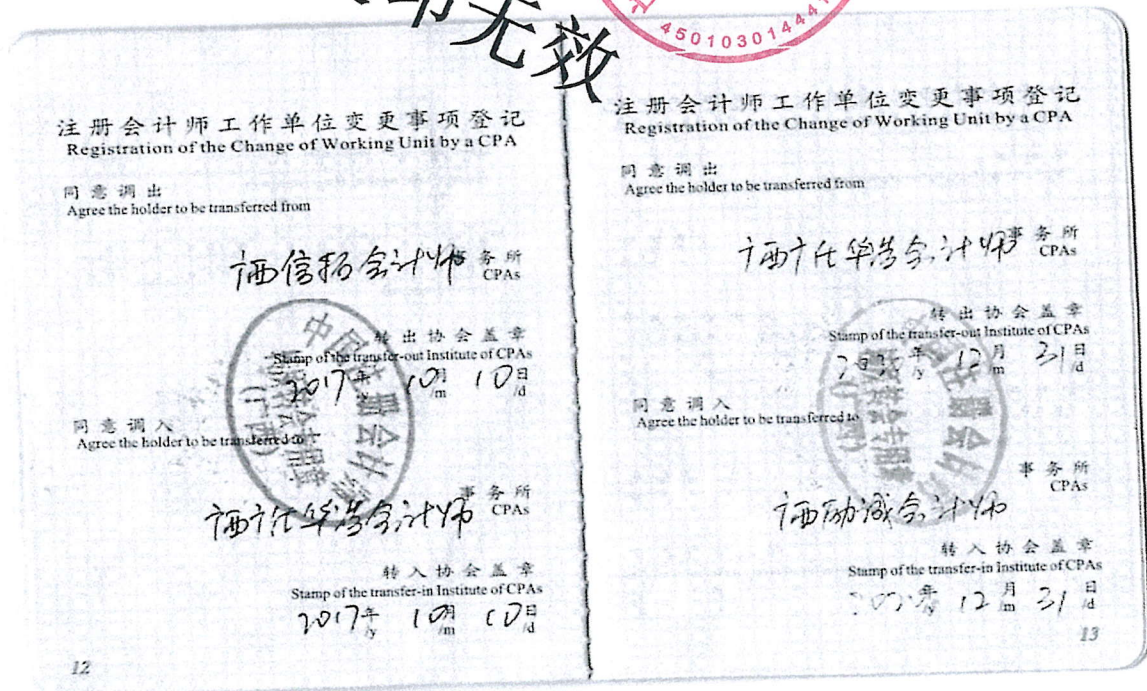 无效
45010301444
注册会计师工作单位变更事项登记
Registration of the Change of Working Unit by a CPA
同意调出
Agree the holder to be transferred from
广西信拓会计师事务所
CPAs
转出协会盖章
Stamp of the transfer-out Institute of CPAs
2017年 10月 10日
/y /m /d
同意调入
Agree the holder to be transferred to
事务所
广西 华 会计师 CPAs
转入协会盖章
Stamp of the transfer-in Institute of CPAs
2017年 10月 10日
/y /m /d
12
注册会计师工作单位变更事项登记
Registration of the Change of Working Unit by a CPA
同意调出
Agree the holder to be transferred from
广西 华 会计师事务所
CPAs
转出协会盖章
Stamp of the transfer-out Institute of CPAs
年 12月 31日
/y /m /d
同意调入
Agree the holder to be transferred to
事务所
CPAs
广西励诚会计师
转入协会盖章
Stamp of the transfer-in Institute of CPAs
年 12月 31日
/y /m /d
13